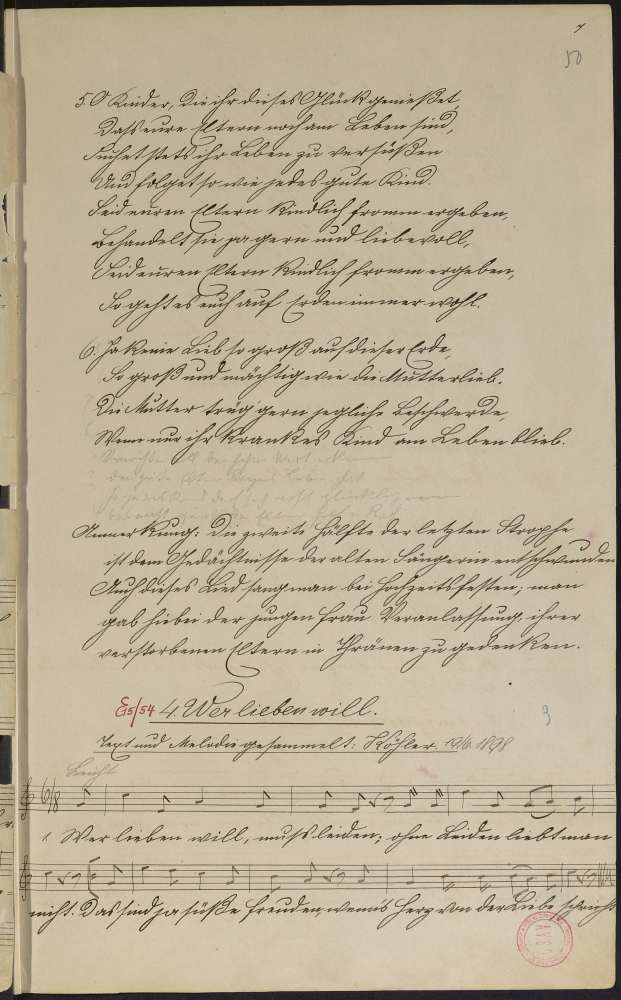 7
50
5. O Kinder, die ihr dieses Glück genießet,
Daß eure Eltern noch am Leben sind,
Suchet stets ihr Leben zu versüßen
Und folget so wie jedes gute Kind.
Seid euren Eltern kindlich fromm ergeben,
Behandelt sie ja gern und liebevoll,
Seid euren Eltern kindlich fromm ergeben,
So geht es euch auf Erden immer wohl.
6. Ja keine Lieb so groß auf dieser Erde,
So groß und mächtig wie die Mutterlieb.
Die Mutter trüg' gern jegliche Beschwerde,
Wenn nur ihr krankes Kind am Leben blieb.
Anmerkung: Die zweite Hälfte der letzten Strophe
ist dem Gedächtnisse der alten Sängerin entschwunden
Auch dieses Lied sang man bei Hochzeitsfesten; man
gab hiebei der jungen Frau Veranlassung, ihrer
verstorbenen Eltern in Thränen zu gedenken.
E15/54 4. Wer lieben will.
9
Text und Melodie gesammelt: Köhler. 19/6. 1898
Leicht
6/8
1. Wer lieben will, muß leiden; ohne Leiden liebt man
nicht. Das sind ja süße Freuden, wenn's Herz von der Liebe spricht